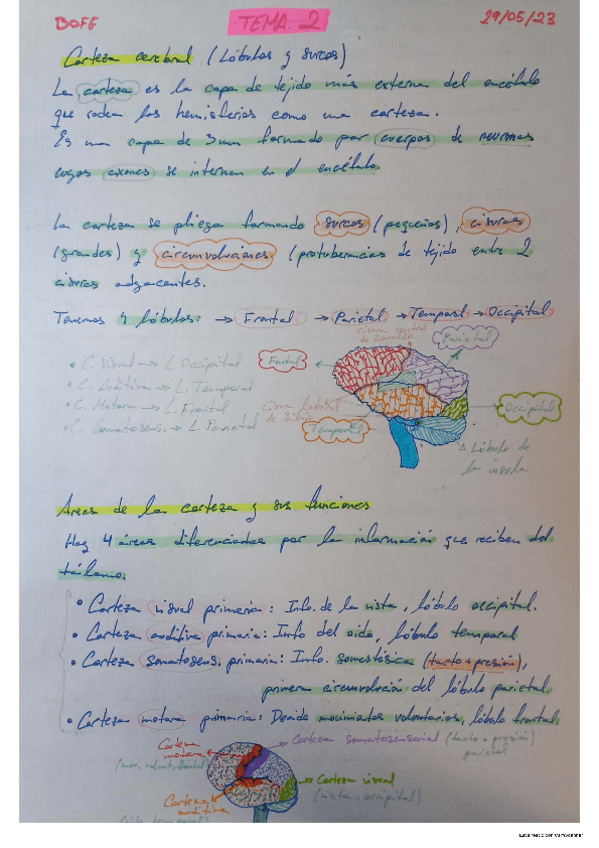 BOFE TEMA 2 29/05/23
Corteza cerebral (Lóbulos y surcos)
La corteza es la capa de tejido más externa del encéfalo
que rodea los hemisferios como una corteza.
Es una capa de 3mm formado por cuerpos de neuronas
cuyos axones se internan en el encéfalo.
La corteza se pliega formando surcos (pequeños), cisuras
(grandes) y circunvoluciones (protuberancias de tejido entre 2
cisuras adyacentes.
Tenemos 4 lóbulos: → Frontal → Parietal → Temporal → Occipital
Cisura central
de Rolando
Parietal
Frontal
• C. Visual → L. Occipital
• C. Auditiva → L. Temporal
• C. Motora → L. Frontal
• C. Somatosens. → L. Parietal
Cisura lateral
de Silvio
Temporal
Occipital
Lóbulo de
la ínsula
Áreas de la corteza y sus funciones
Hay 4 áreas diferenciadas por la información que reciben del
tálamo.
• Corteza visual primaria: Info. de la vista, lóbulo occipital.
• Corteza auditiva primaria: Info del oído, lóbulo temporal
• Corteza somatosens. primaria: Info. somestésica (tacto + presión),
primera circunvolución del lóbulo parietal.
• Corteza motora primaria: Decide movimientos voluntarios, lóbulo frontal.
Corteza
motora
(mov. volunt. frontal)
Corteza somatosensorial (tacto + presión)
parietal
Corteza visual
(vista, occipital)
Corteza
auditiva